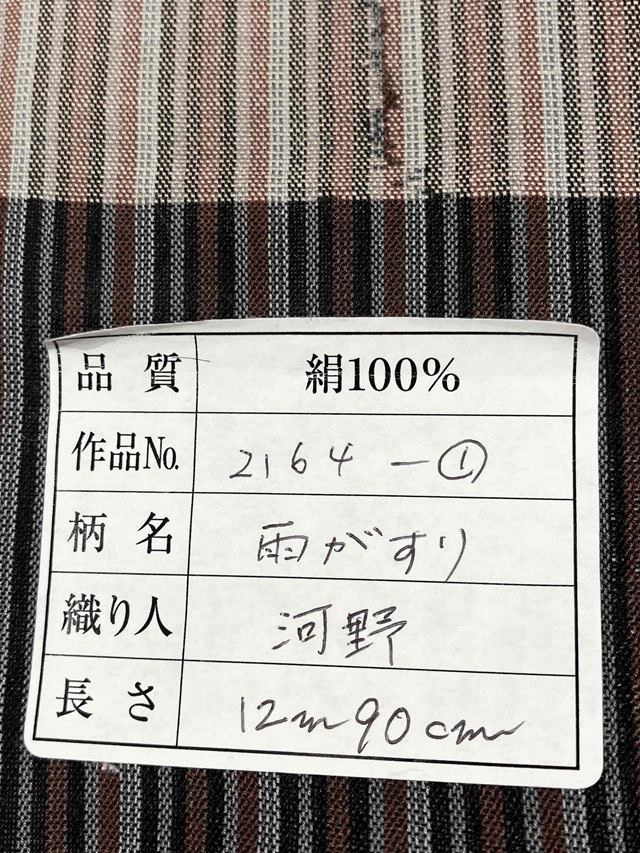 品質 絹100%
作品No. 2164-①
柄名 雨がすり
織り人 河野
長さ 12m90cm